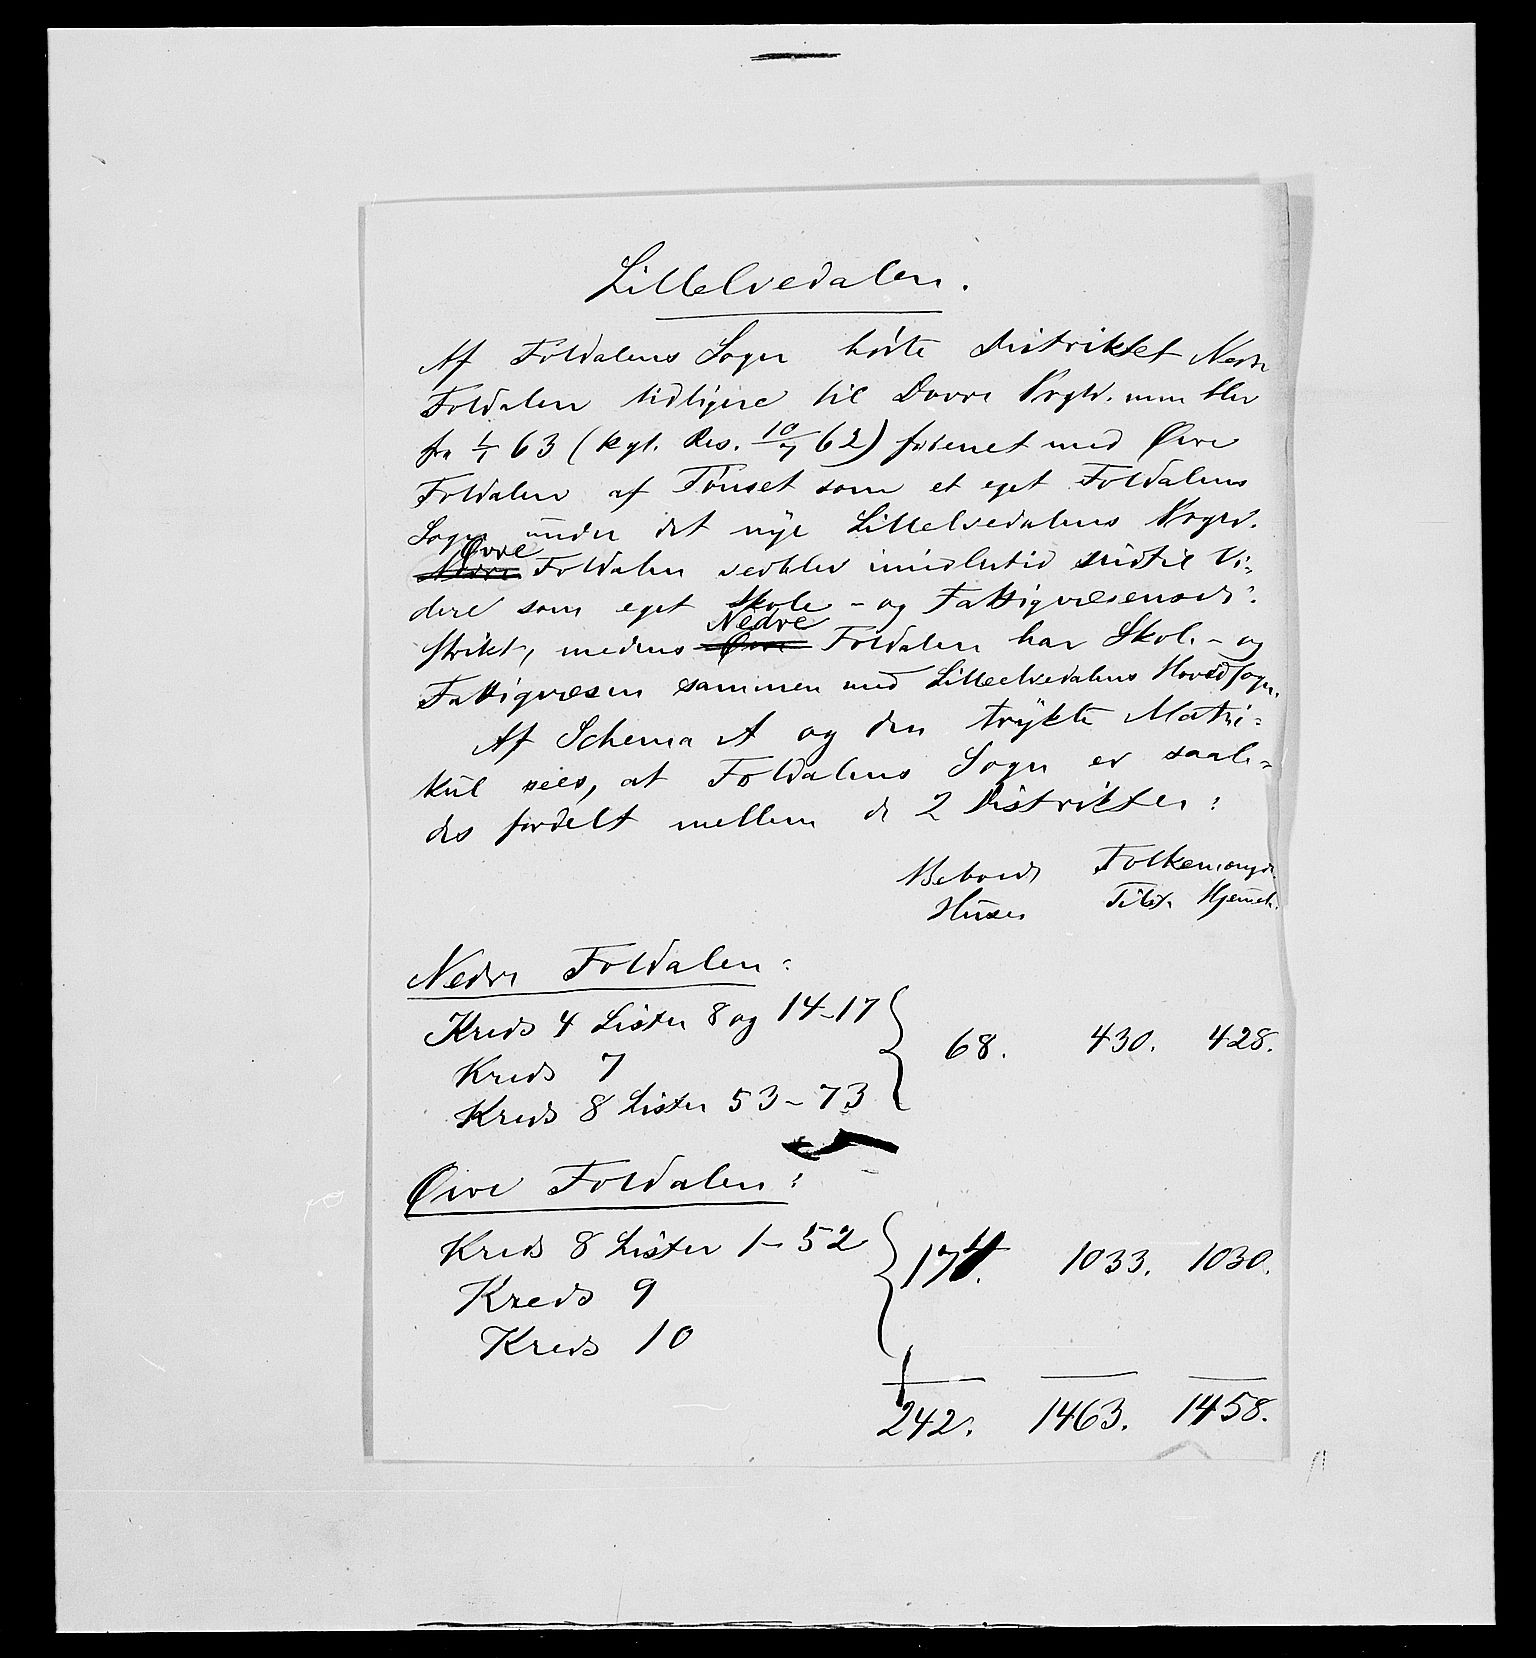 Lillelvedalen.
Af Foldalens Sogn hørte Distriktet Nedre
Foldalen tidligere til Dovre Prgld. men blev
fra 1/1 63 (kgl. Res. 10/7 62) forenet med Øvre
Foldalen af Tønset som et eget Foldalens
Sogn under det nye Lillelvedalens Prgld.
Øvre
Nedre Foldalen vedblev imidlertid indtil Vi-
dere som eget Skole- og Fattigvæsensdi-
Nedre
strikt, medens Øvre Foldalen har Skole- og
Fattigvæsen sammen med Lilleelvedalens Hovedsogn.
Af Schema A og den trykte Matri-
kul sees, at Foldalens Sogn er saale-
des fordelt mellem de 2 Distrikter:
Beboede Folkemængde
Huse Tilst. Hjemmeh.
Nedre Foldalen:
Kreds 4 Lister 8 og 14-17
Kreds 7 68. 430. 428.
Kreds 8 Lister 53-73
Øvre Foldalen:
Kreds 8 Lister 1-52
Kreds 9 174. 1033. 1030.
Kreds 10
242. 1463. 1458.